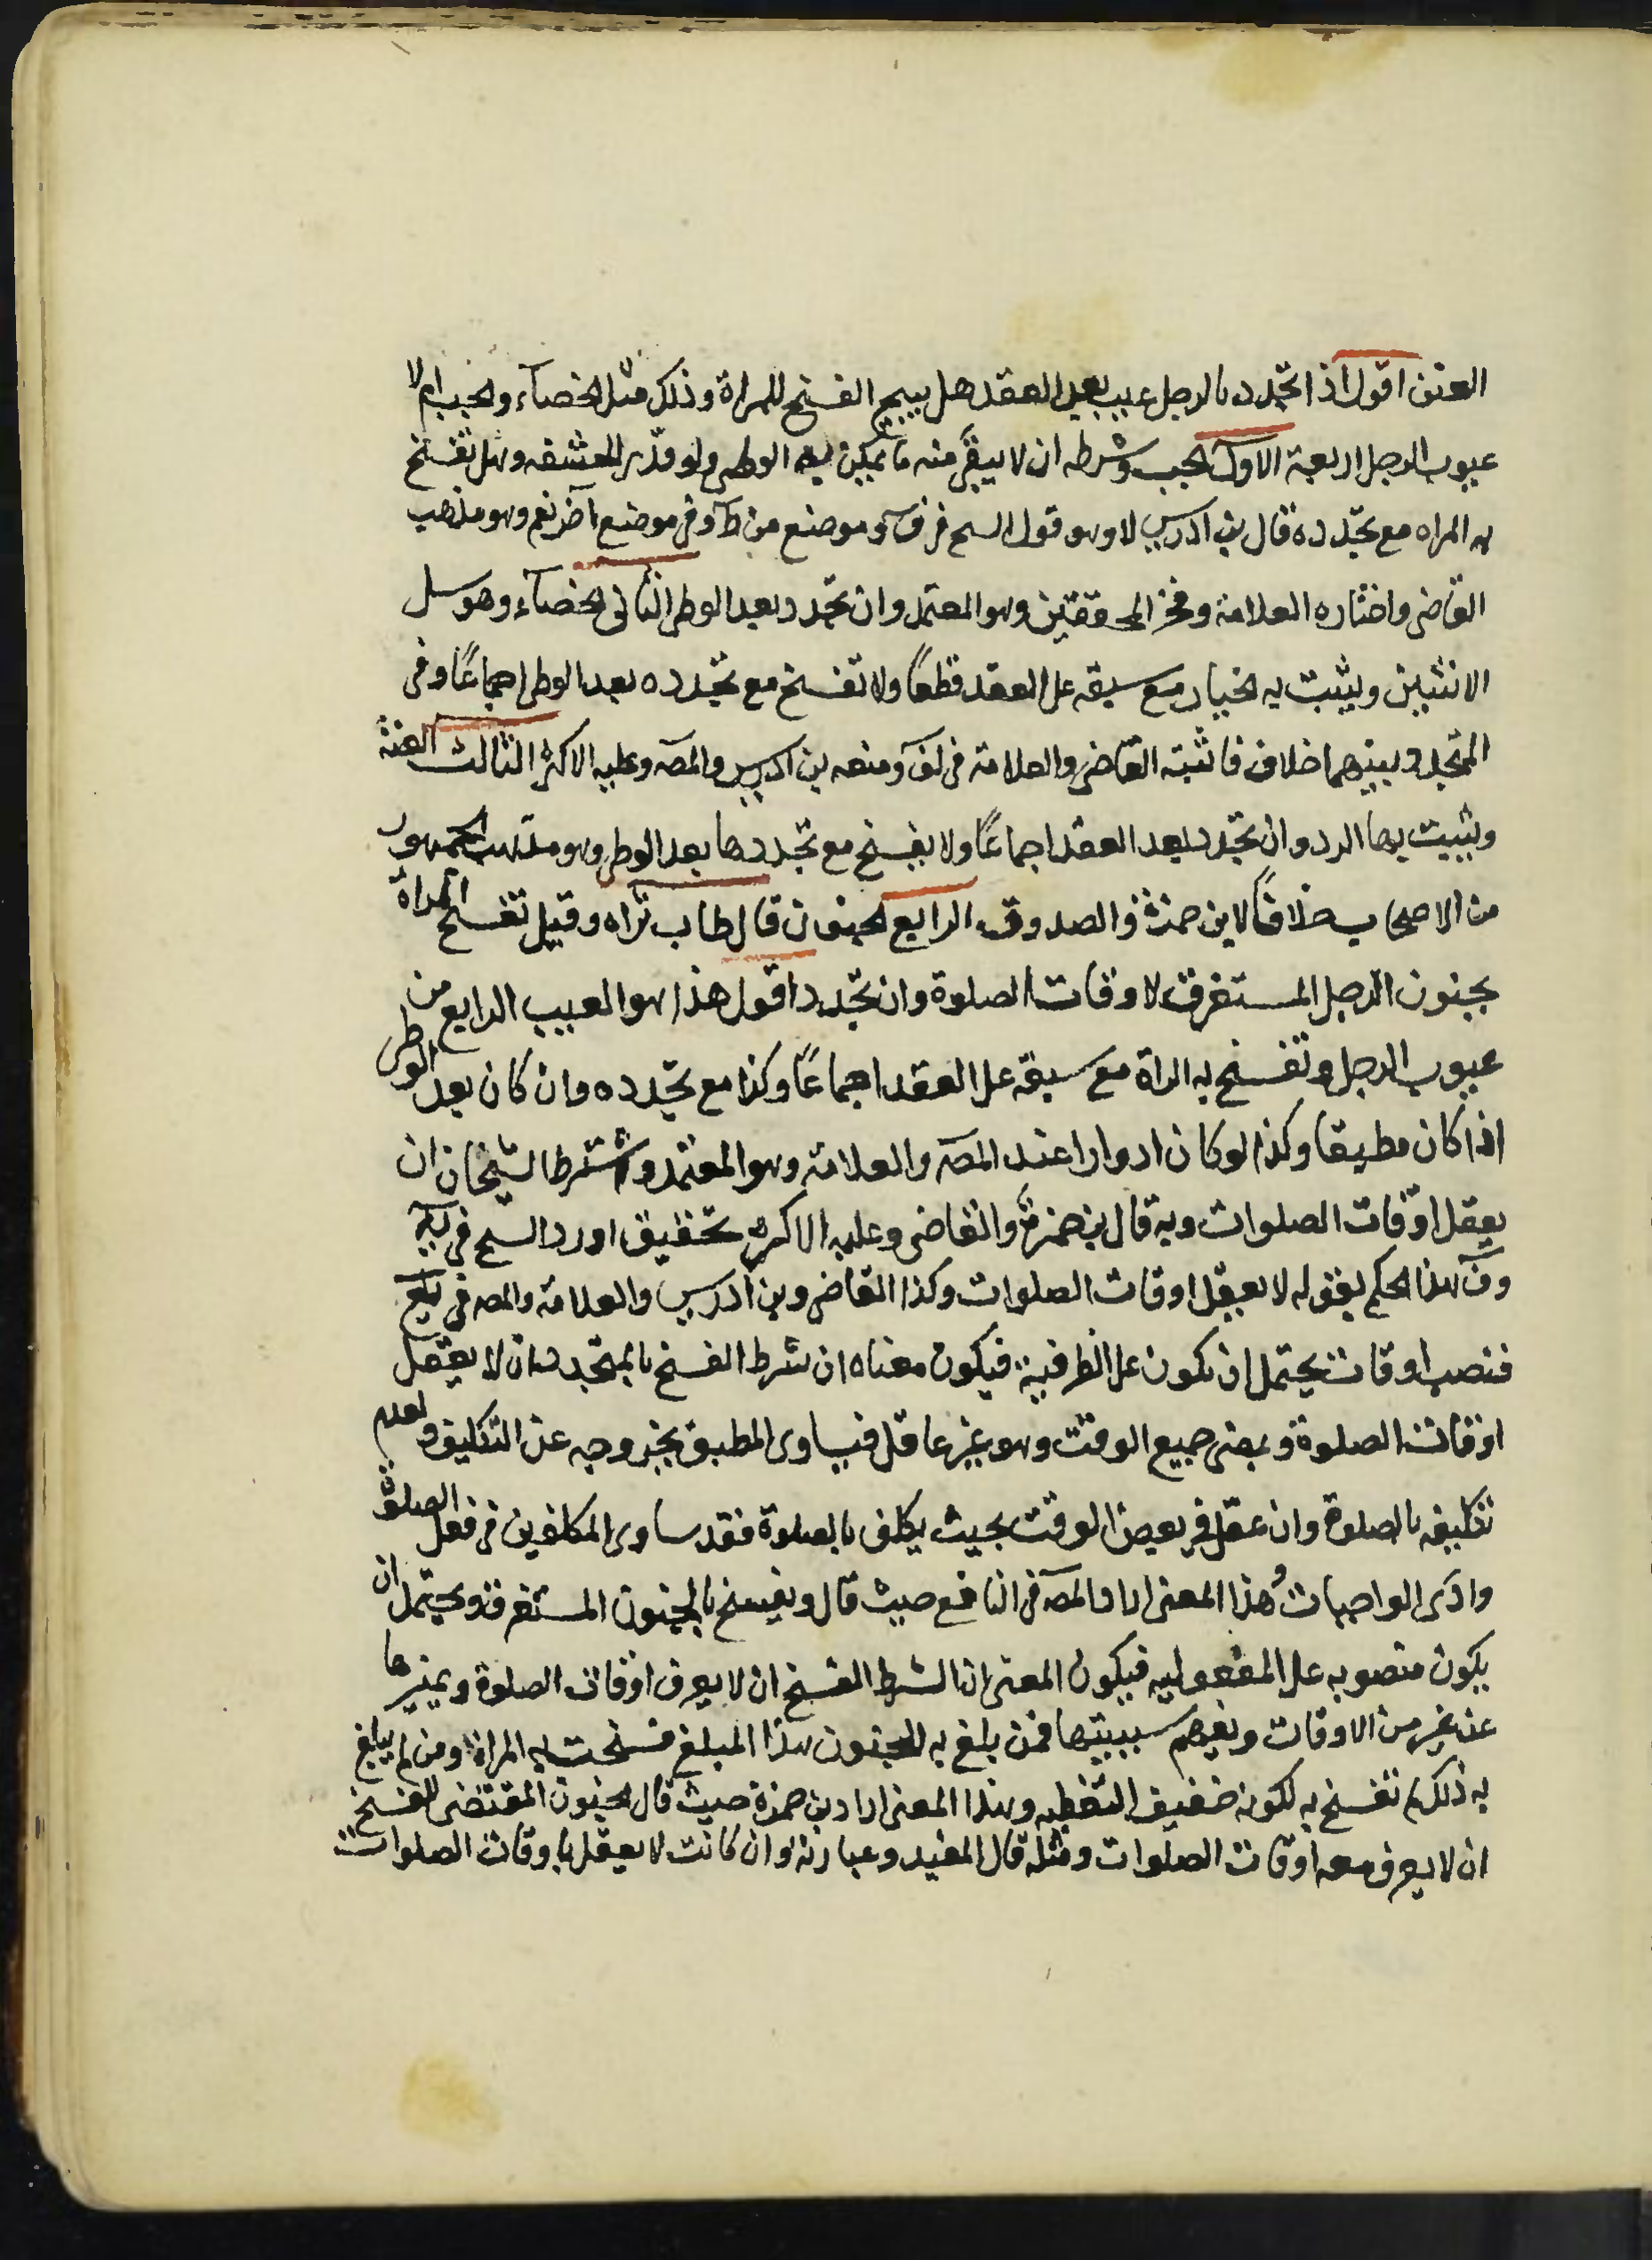 العنن اقول اذا تجدد بالرجل عيب بعد العقد هل يبيح الفسخ للمراة وذلك مثل الخصآء والجب ام لا
عيوب الرجل اربعة الاول الجب وشرطه ان لا يبقى منه ما يمكن به الوطى ولو قدر الحشفه وهل تفسخ
به المراه مع تجدده قال بن ادريس لا وهو قول الشيخ فى ف وموضع من ط وفى موضع آخر نعم وهو مذهب
القاضى واختاره العلامة وفخر المحققين وهو المعتمد وان تجدد بعد الوطى الثانى الخصآء وهو سل
الانثيين ويثبت به الخيار مع سبقه على العقد قطعًا ولا تفسخ مع تجدده بعد الوطى اجماعًا وفى
المتجدد بينهما خلاف فاثبته القاضى والعلامة فى لف ومنعه بن ادريس والمصه وعليه الاكثر الثالث العنة
ويثبت بها الرد وان تجدد بعد العقد اجماعًا ولا يفسخ مع تجددها بعد الوطى وهو مذهب الجمهور
من الاصحاب خلافًا لابن حمزة والصدوق الرابع الجنون قال طاب ثراه وقيل تفسخ المراة
بجنون الرجل المستغرق لاوقات الصلوة وان تجدد اقول هذا هو العيب الرابع من
عيوب الرجل وتفسخ به المراة مع سبقه على العقد اجماعًا وكذا مع تجدده وان كان بعد الوطى
اذا كان مطبقا وكذا لو كان ادوارا عند المصه والعلامة وهو المعتمد واشترط الشيخان ان
يعقل اوقات الصلوات وبه قال بن حمزة والقاضى وعليه الاكثر تحقيق اورد الشيخ فى يه
وف هذا الحكم بقوله لا يعقل اوقات الصلوات وكذا القاضى وبن ادريس والعلامة والمصه فى يع
فنصب اوقات يحتمل ان يكون على الظرفية فيكون معناه ان شرط الفسخ بالمتجدد ان لا يعقل
اوقات الصلوة وبمضى جميع الوقت وهو غير عاقل فيساوى المطبق بخروجه عن التكليف ولعدم
تكليفه بالصلوة وان عقل فى بعض الوقت بحيث يكلف بالصلوة فقد ساوى المكلفين فى فعل الصلوة
وادى الواجبات وهذا المعنى اراد المصه فى النافع حيث قال ويفسخ بالجنون المستغرق ويحتمل ان
يكون منصوبه على المفعوليه فيكون المعنى ان الشرط الفسخ ان لا يعرف اوقات الصلوة ويميزها
عن غيرها من الاوقات ويفهم سببيتها فمن بلغ به الجنون هذا المبلغ فسخت به المراة ومن لم يبلغ
به ذلك لم تفسخ به لكونه خفيف التغطيه وهذا المعنى اراد بن حمزة حيث قال الجنون المقتضى للفسخ
ان لا يعرف معه اوقات الصلوات ومثله قال المفيد وعبارته وان كانت لا يعقل باوقات الصلوات